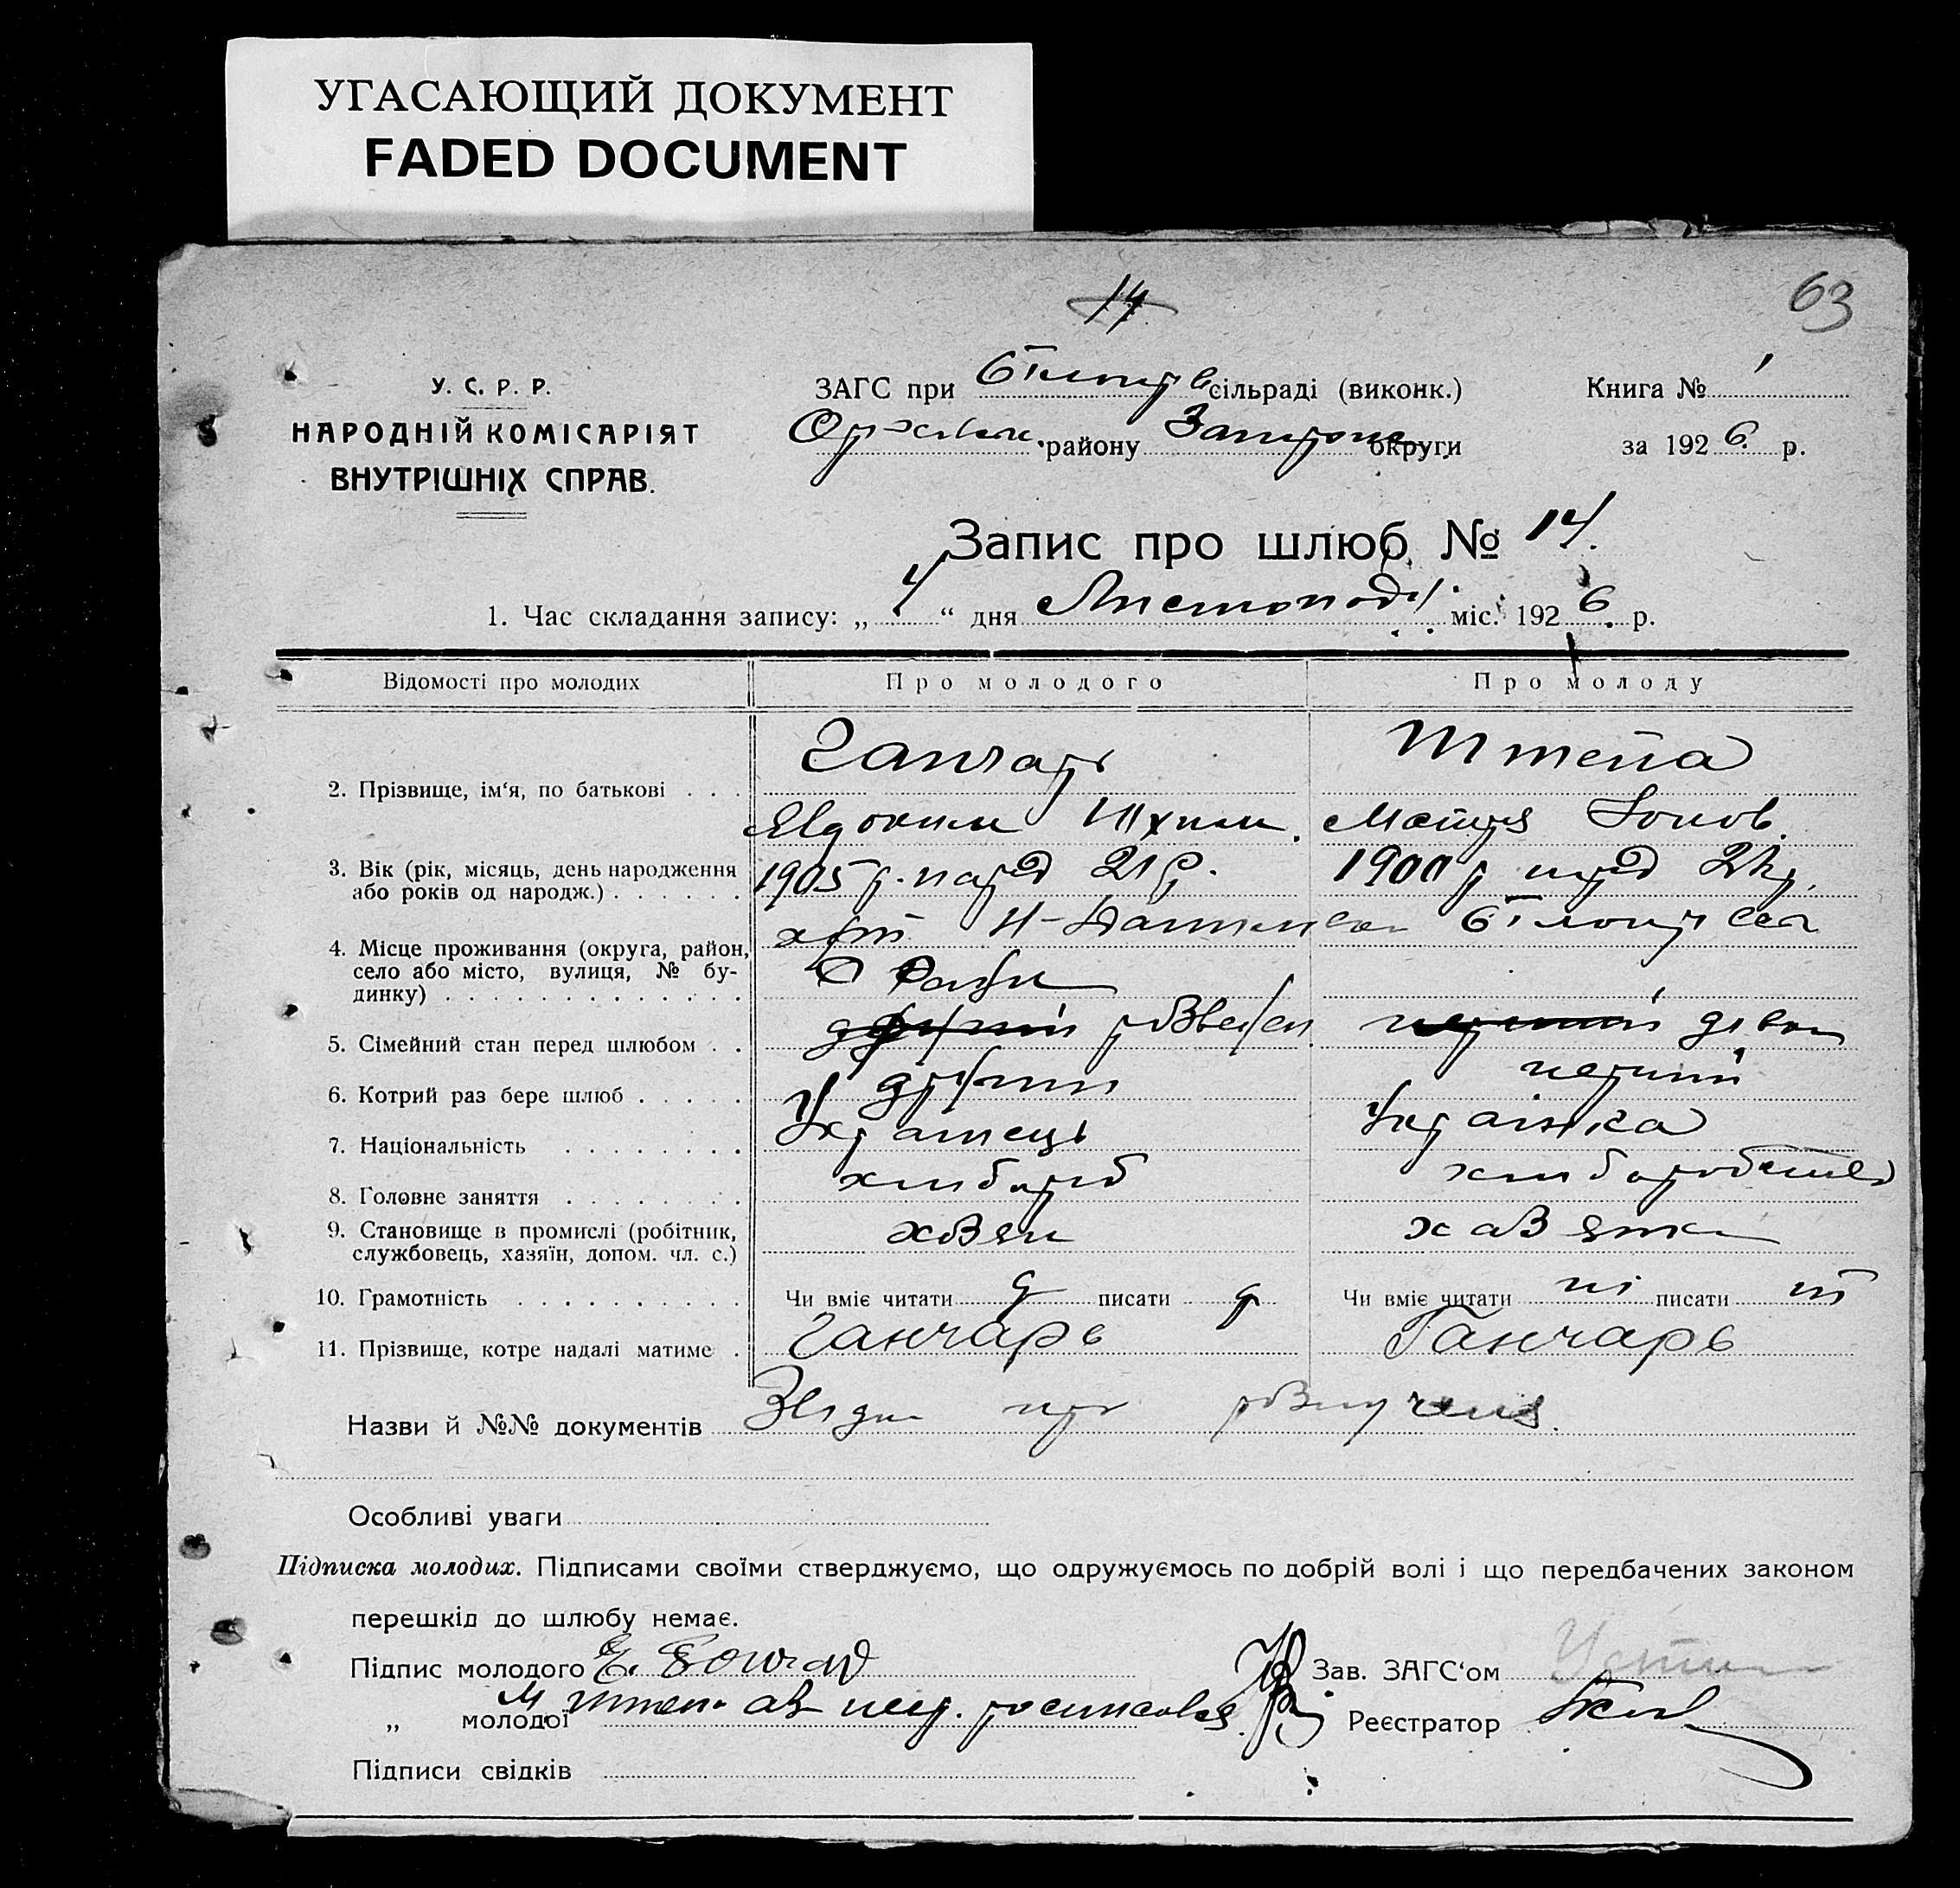 УГАСАЮЩИЙ ДОКУМЕНТ
FADED DOCUMENT
14
63
У. С. Р. Р.
НАРОДНІЙ КОМІСАРІЯТ
ВНУТРІШНІХ СПРАВ.
ЗАГС при сільраді (виконк.)
району округи
Книга № 1
за 1926 р.
Запис про шлюб № 14.
1. Час складання запису: „ 4 “ дня Листопада міс. 1926 р.
Відомості про молодих Про молодого Про молоду
2. Прізвище, ім‘я, по батькові . . . Ганчарь Штепа
Евдоким
3. Вік (рік, місяць, день народження
або років од народж.) . . . . . . 1905 р. народ 21 р. 1900 р народ
4. Місце проживання (округа, район,
село або місто, вулиця, № бу-
динку) . . . . . . . . . . . . .
5. Сімейний стан перед шлюбом . . другий розведен. перший
6. Котрий раз бере шлюб . . . . . другий перший
7. Національність . . . . . . . . Українець Українка
8. Головне заняття . . . . . . . . хлибороб
9. Становище в промислі (робітник,
службовець, хазяїн, допом. чл. с.) хозяин хазяйка
10. Грамотність . . . . . . . . . . Чи вміє читати писати Чи вміє читати ні писати ні
11. Прізвище, котре надалі матиме . Ганчарь Ганчарь
Назви й №№ документів про розлучення.
Особливі уваги
Підписка молодих. Підписами своїми стверджуємо, що одружуємось по добрій волі і що передбачених законом
перешкід до шлюбу немає.
Підпис молодого Зав. ЗАГС‘ом
„ молодої М Штепа Реєстратор
Підписи свідків